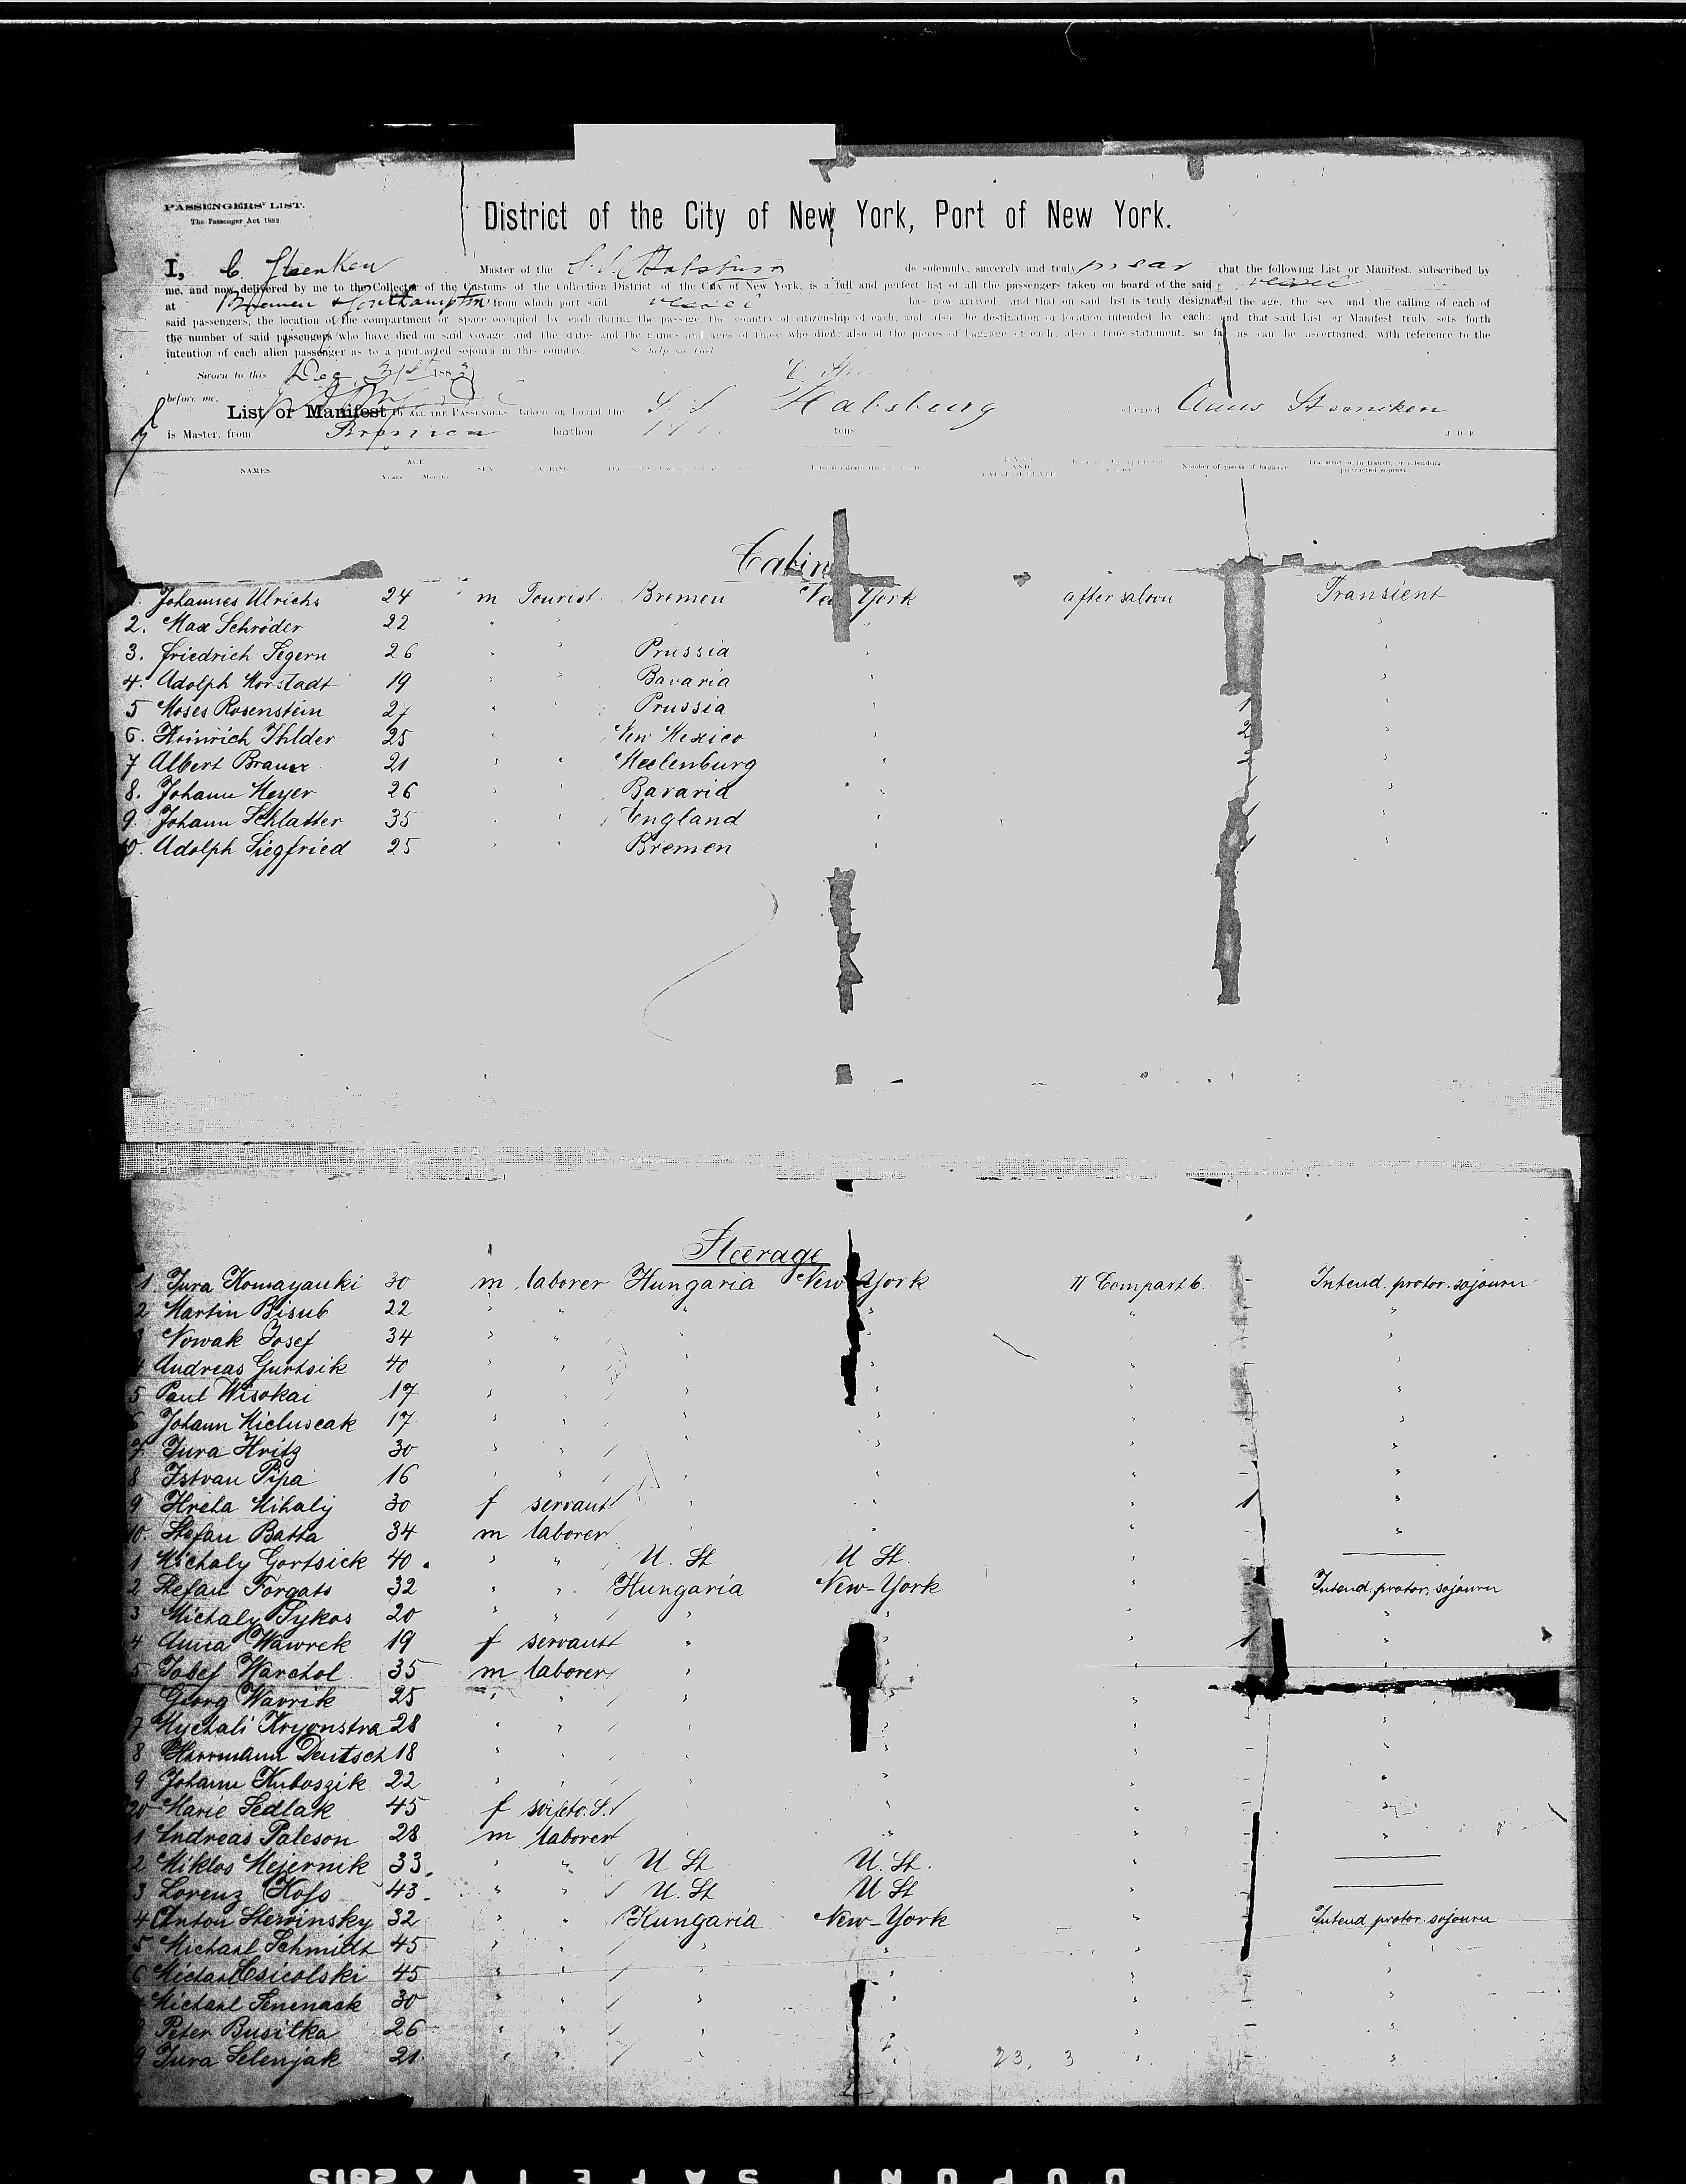 PASSENGERS' LIST.
The Passenger Act 1882.
District of the City of New York, Port of New York.
I, C. Steenken Master of the S.S. Habsburg do solemnly, sincerely and truly swear that the following List or Manifest, subscribed by
me, and now delivered by me to the Collector of the Customs of the Collection District of the City of New York, is a full and perfect list of all the passengers taken on board of the said vessel
at Bremen & Southampton from which port said vessel has now arrived; and that on said list is truly designated the age, the sex, and the calling of each of
said passengers, the location of the compartment or space occupied by each during the passage, the country of citizenship of each, and also the destination or location intended by each; and that said List or Manifest truly sets forth
the number of said passengers who have died on said voyage, and the dates and the names and ages of those who died; also of the pieces of baggage of each; also a true statement, so far as can be ascertained, with reference to the
intention of each alien passenger as to a protracted sojourn in this country. So help me God.
Sworn to this Dec. 31st 1883
before me.
List or Manifest OF ALL THE PASSENGERS taken on board the S S Habsburg whereof
is Master, from Bremen burthen tons
J. D. P.
NAMES AGE Years Months SEX CALLING Intended destination or location DATE AND CAUSE OF DEATH Number of pieces of baggage Transient or in transit, or intending protracted sojourn
Cabin
1. Johannes Ulrichs 24 m Tourist Bremen New York after saloon Transient
2. Max Schröder 22 " " "
3. Friedrich Segern 26 " " Prussia " "
4. Adolph Horstadt 19 " " Bavaria " "
5 Moses Rosenstein 27 " " Prussia " 1 "
6. Heinrich Ihlder 25 " " New Mexico " 2 "
7 Albert Brauer 21 " " Meclenburg " 2 "
8. Johann Meyer 26 " " Bavaria " 1 "
9. Johann Schlatter 35 " " England " 1 "
10. Adolph Siegfried 25 " " Bremen " 1 "
Steerage
1 Jura Komayanki 30 m laborer Hungaria New York II Compart 6. - Intend. protor. sojourn
2 Martin Bisub 22 " " " " " "
3 Nowak Josef 34 " " " " " "
4 Andreas Gurtsik 40 " " " " " - "
5 Paul Wisokai 17 " " " " " - "
6 Johann Micluscak 17 " " " " " - "
7. Jura Hritz 30 " " " " " - "
8 Istvan Pipa 16 " " " " " - "
9 Hreha Mihaly 30 f servant " " " 1 "
10. Stefan Batta 34 m laborer " " " - "
1 Michaly Gortsick 40 " " U. St U St. " -
2 Stefan Forgats 32 " " Hungaria New-York " - Intend. protor. sojourn
3 Michaly Sykos 20 " " " " " - "
4 Anna Wawrek 19 f servant " " " 1 "
5 Josef Warchol 35 m laborer " " " "
Georg Wavrik 25 " " " " " "
7 Mychali Kryonstra 28 " " " " "
8 Herrmann Deutsch 18 " " " " "
9 Johann Kuboszik 22 " " " " - "
20 Marie Sedlak 45 f " " - "
1 Andreas Paleson 28 m laborer " " "
2 Miklos Mejernik 33. " " U St U. St. "
3 Lorenz Koss 43 " " U. St U St "
4 Anton Stewinsky 32 " " Hungaria New-York " Intend protor. sojourn
5 Michael Schmidt 45 " " " " " "
6 Michael Csicolski 45 " " " " " - "
7 Michael Senenack 30 " " " " " - "
8 Peter Busilka 26 " " " " " - "
9 Jura Selenjak 21 " " " " 23, 3 " - "